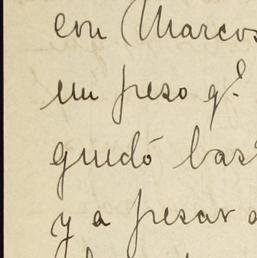 con Marcos
un peso q.e
quedó bas
y a pesar